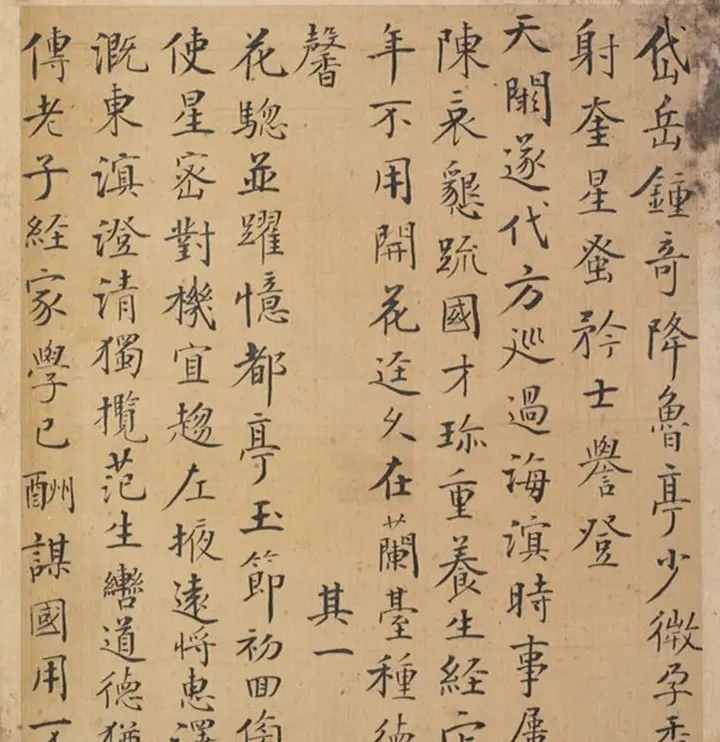 岱岳鍾奇降魯亭少微孕秀
射奎星蚤矜士譽登
天闕遂代方巡過海濱時事屢
陳哀懇疏國才珎重養生経它
年不用開花逕久在蘭臺種德
馨
其一
花驄並躍憶都亭玉節初回
使星密對機宜趨左掖遠将恵澤
溉東濵澄清獨攬范生轡道德猶
傳老子経家學已酬謀國用